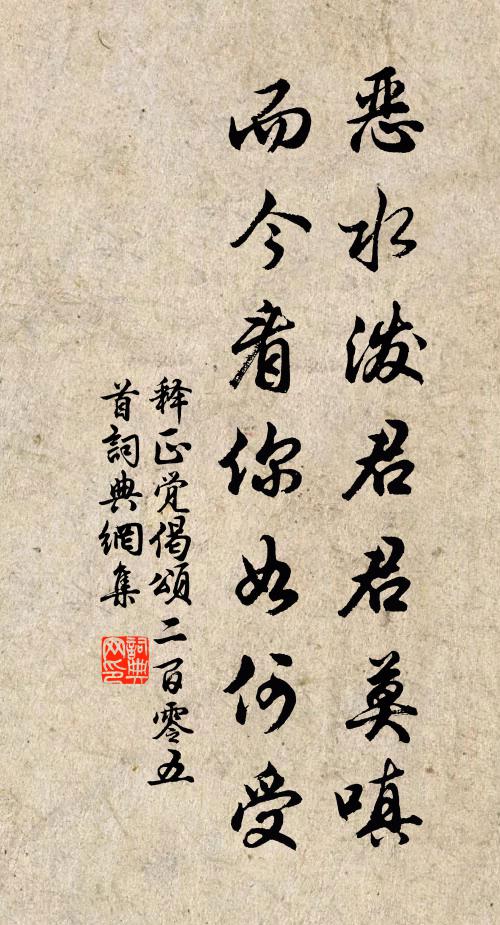 恶水泼君君莫嗔
而今看你如何受
释正觉偈颂二百零五
首詞典網集
詞典
网印